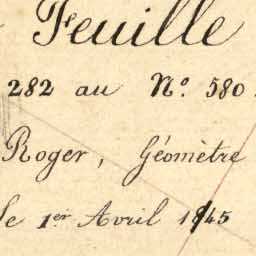 Feuille
282 au N.º 580.
Roger, Géomètre
le 1er Avril 1845